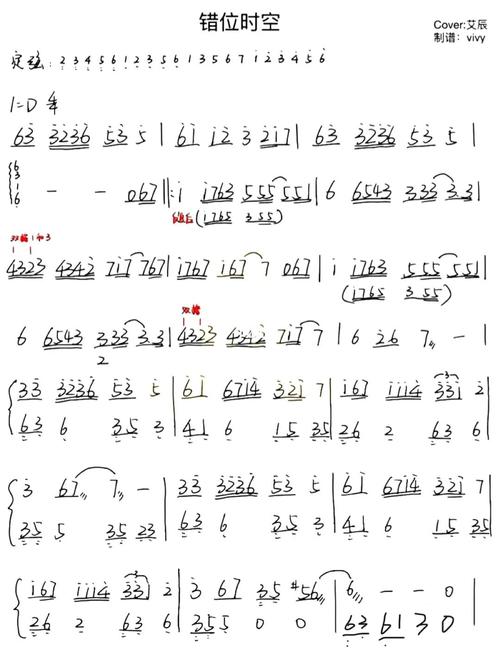 错位时空
Cover:艾辰
制谱:vivy
定弦: 2 3 4 5 6 1 2 3 5 6 1 3 5 6 7 1 2 3 4 5 6
1=D
63 3236 53 5 | 61 12 3 217 | 63 3236 53 5 |
6316 - - 067 |: 1 1763 555 551 | 6 6543 333 3.31
(1765 3.55)
双摇1和3
4323 4342 717 767 | 1767 167 7 067 | 1 1763 555 551 |
(1765 3 55)
双摇
6 6543 333 3.31 | 4323 4342 717 7 | 6 26 7 - |
2
33 3236 53 5 | 61 6714 321 7 | 167 1114 331 2
63 6 35 3 | 41 6 15 35 | 26 2 63 6
3 67 7 - | 33 3236 53 5 | 61 6714 321 7
35 5 35 23 | 63 6 35 3 | 41 6 15 35
167 1114 331 2 | 3 67 35 #56 | 6 - - 0
26 2 63 6 | 355 0 0 | 63 61 3 0